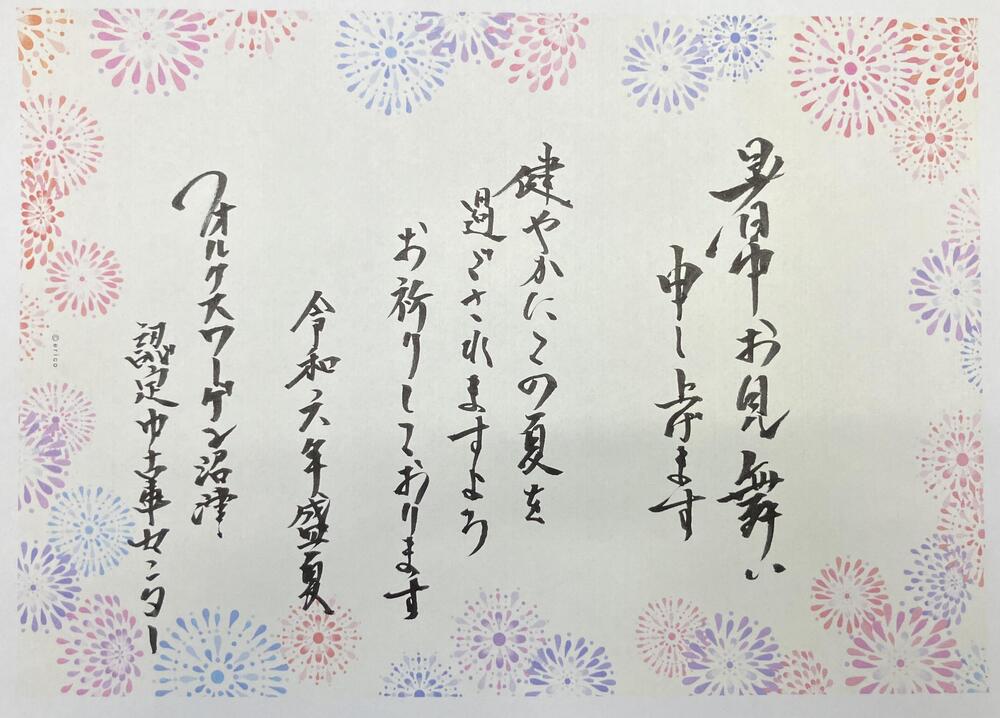 暑中お見舞い
申し上げます
健やかにこの夏を
過ごされますよう
お祈りしております
令和六年盛夏
フォルクスワーゲン沼津
認定中古車センター
©erico